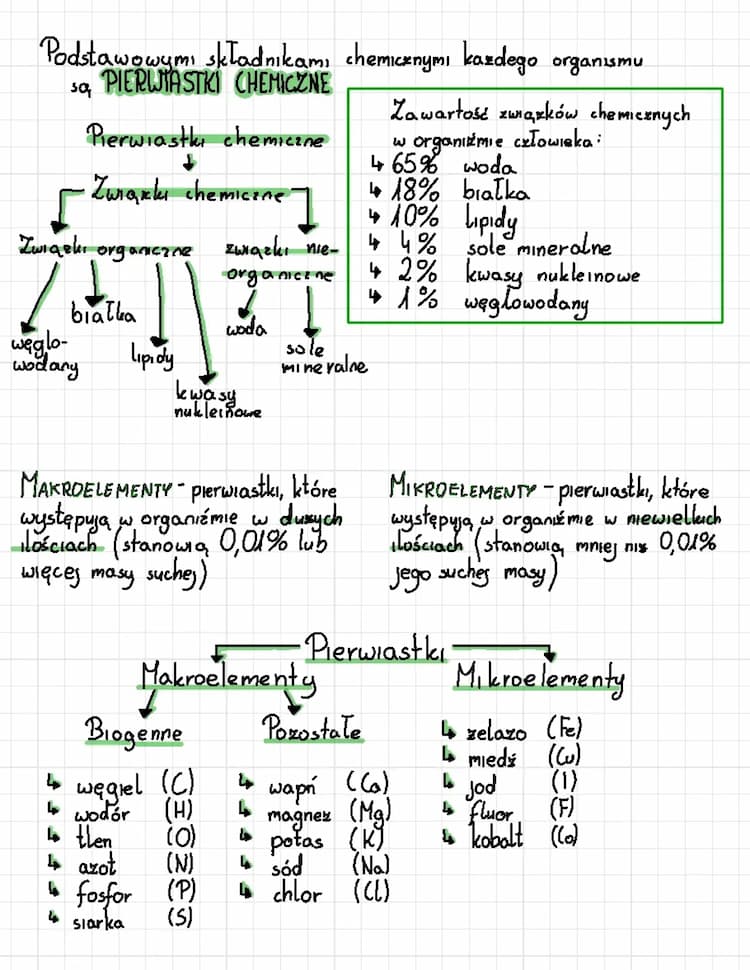 Podstawowymi składnikami chemicznymi każdego organizmu
są PIERWIASTKI CHEMICZNE
Pierwiastki chemiczne
Związki chemiczne
Związki organiczne
węglo-
wodany
białka
lipidy
kwasy
nukleinowe
związki nie-
organiczne
woda
sole
mineralne
Zawartość związków chemicznych
w organiźmie człowieka:
↳ 65% woda
↳ 18% białka
↳ 10% lipidy
↳ 4% sole mineralne
↳ 2% kwasy nukleinowe
↳ 1% węglowodany
MAKROELEMENTY - pierwiastki, które
występują w organiźmie w dużych
ilościach (stanowią 0,01% lub
więcej masy suchej)
MIKROELEMENTY - pierwiastki, które
występują w organiźmie w niewielkich
ilościach (stanowią mniej niż 0,01%
jego suchej masy)
Pierwiastki
Makroelementy
Mikroelementy
Biogenne
↳ węgiel (C)
↳ wodór (H)
↳ tlen (O)
↳ azot (N)
↳ fosfor (P)
↳ siarka (S)
Pozostałe
↳ wapń (Ca)
↳ magnez (Mg)
↳ potas (K)
↳ sód (Na)
↳ chlor (Cl)
↳ żelazo (Fe)
↳ miedź (Cu)
↳ jod (I)
↳ fluor (F)
↳ kobalt (Co)